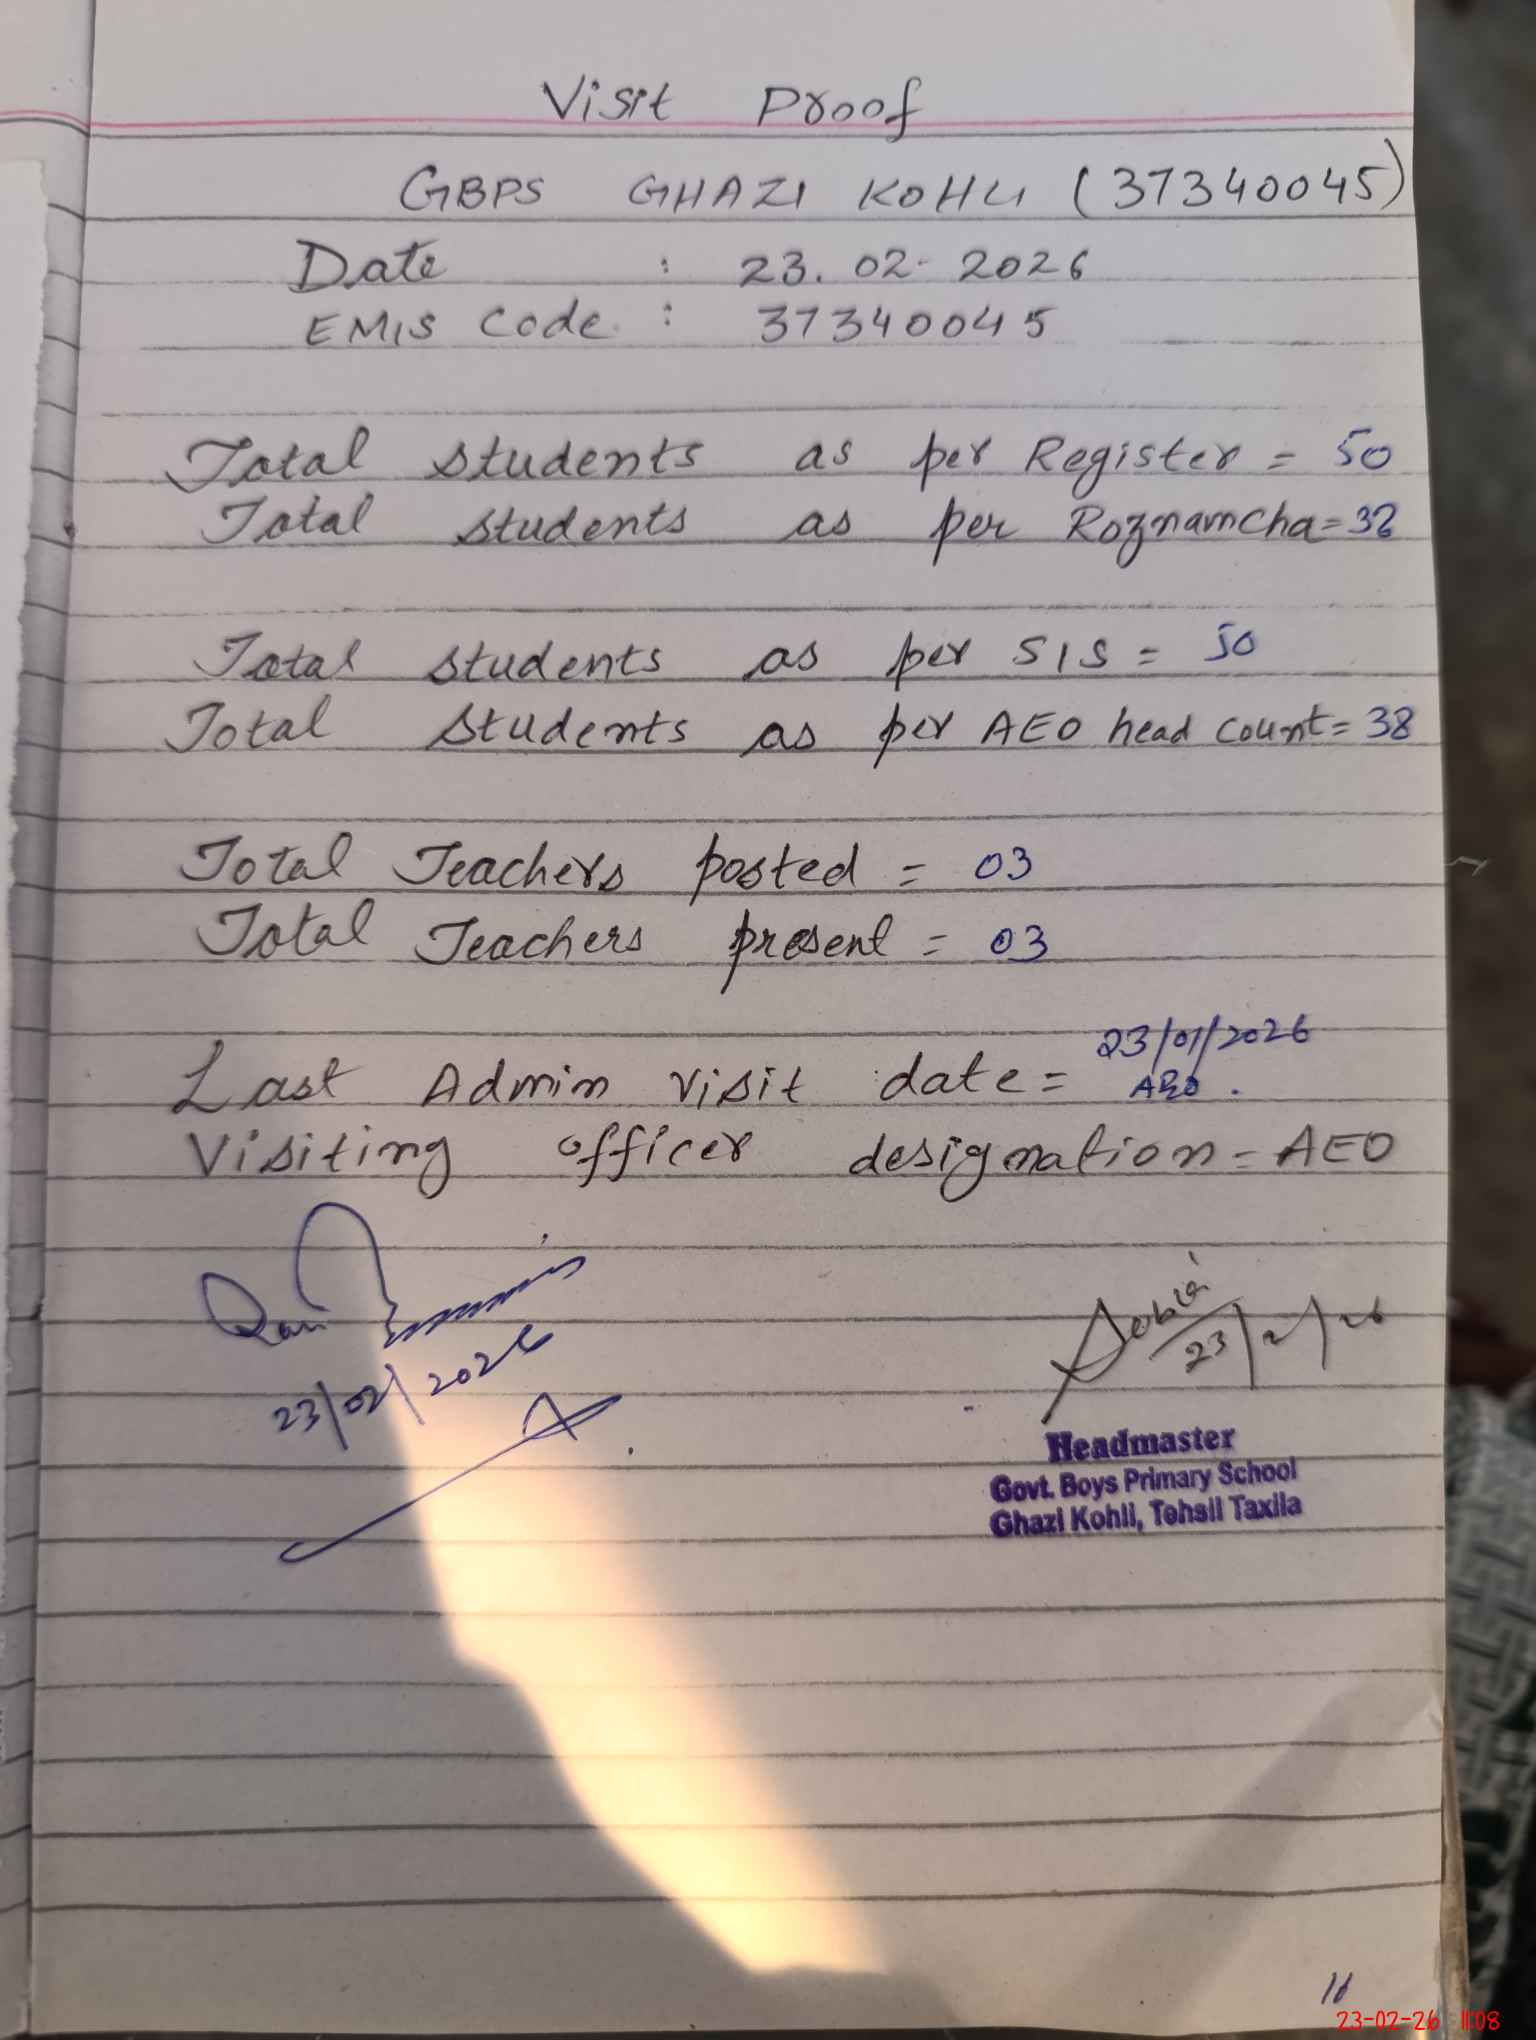 Visit Proof
GBPS GHAZI KOHLI (37340045)
Date : 23.02.2026
EMIS Code : 37340045
Total students as per Register = 50
Total students as per Roznamcha = 38
Total students as per SIS = 50
Total students as per AEO head count = 38
Total Teachers posted = 03
Total Teachers present = 03
23/01/2026
Last Admin visit date = AEO.
Visiting officer designation = AEO
23/02/2026
Sobia
23/2/26
Headmaster
Govt. Boys Primary School
Ghazi Kohli, Tehsil Taxila
23-02-26 11:08